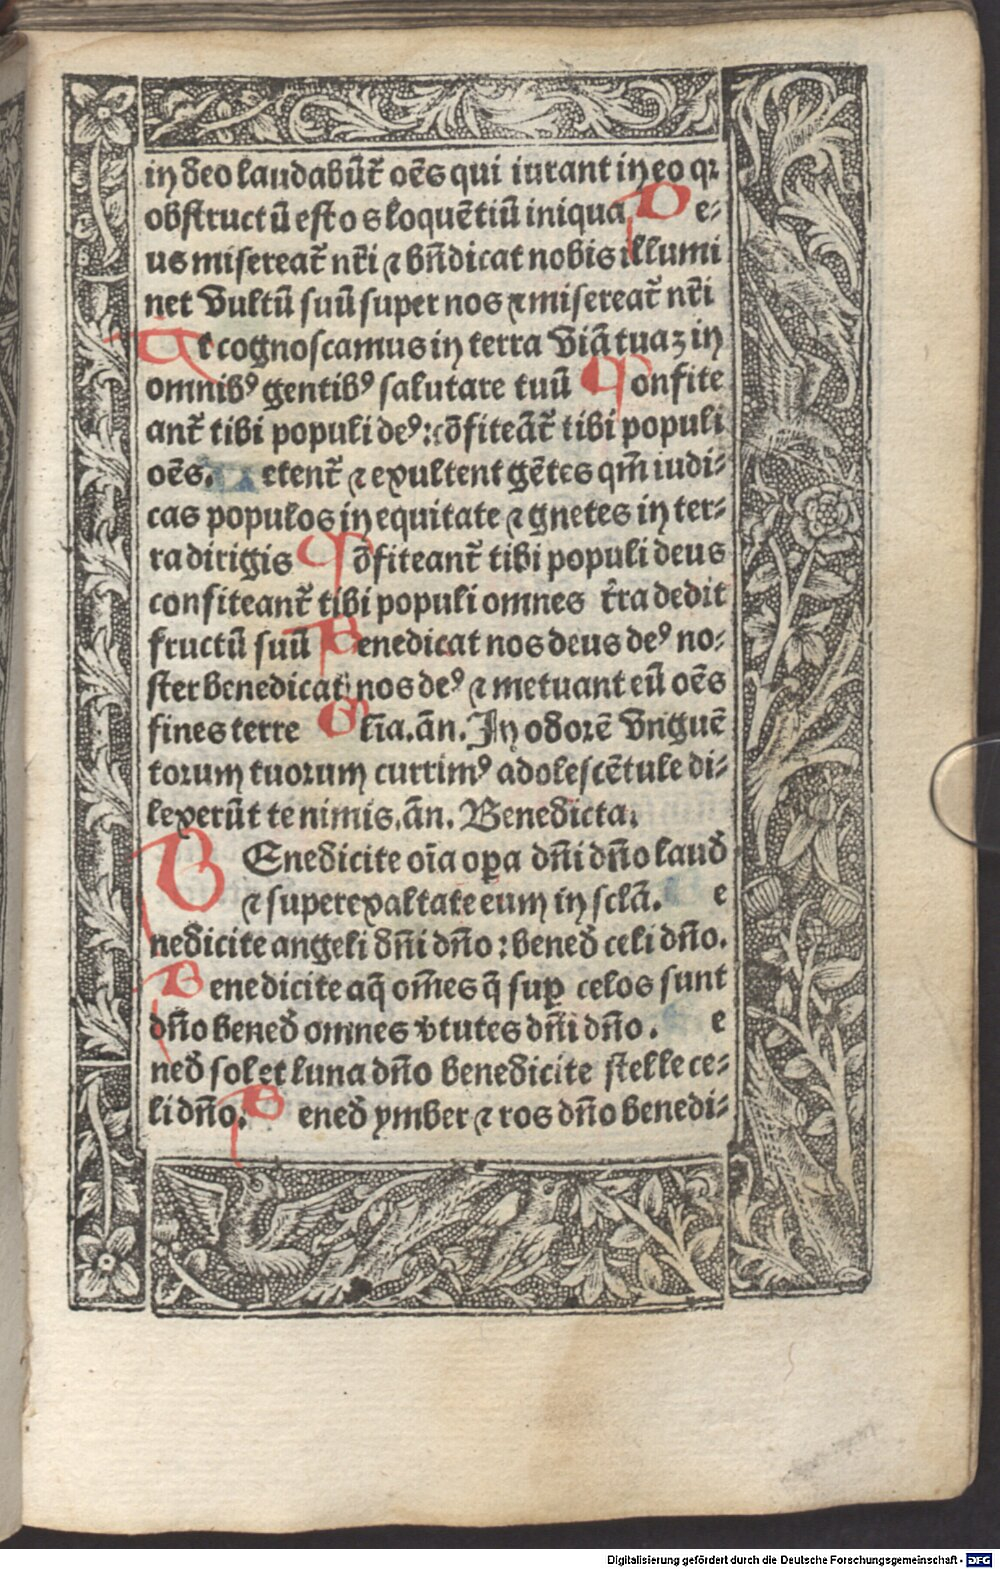 in deo laudabũt̃ oẽs qui iurant in eo qꝛ
obstructũ est os loquẽtiũ iniqua De⸗
us misereat̃ nr̃i ⁊ bñdicat nobis illumi
net vultũ suũ super nos ⁊ misereat̃ nr̃i
Ut cognoscamus in terra viã tuaꝫ in
omnibꝰ gentibꝰ salutare tuũ Confite
ant̃ tibi populi deꝰ: cõfiteãt̃ tibi populi
oẽs. Letent̃ ⁊ exultent gẽtes qm̃ iudi⸗
cas populos in equitate ⁊ gnetes in ter⸗
ra dirigis Cõfiteant̃ tibi populi deus
confiteant̃ tibi populi omnes tr̃a dedit
fructũ suũ Benedicat nos deus deꝰ no⸗
ster benedicat nos deꝰ ⁊ metuant eũ oẽs
fines terre Gl̃ia. ãn. In odorẽ vnguẽ
torum tuorum currimꝰ adolescẽtule di⸗
lexerũt te nimis. ãn. Benedicta.
BEnedicite oĩa oꝑa dñi dño laud̃
⁊ superexaltate eum in sclã. e
nedicite angeli dñi dño: bened̃ celi dño.
Benedicite aq̃ om̃es q̃ suꝑ celos sunt
dño bened̃ omnes v̾tutes dñi dño. e
ned̃ sol et luna dño benedicite stelle ce⸗
li dño. Bened̃ ymber ⁊ ros dño benedi⸗
Digitalisierung gefördert durch die Deutsche Forschungsgemeinschaft - DFG